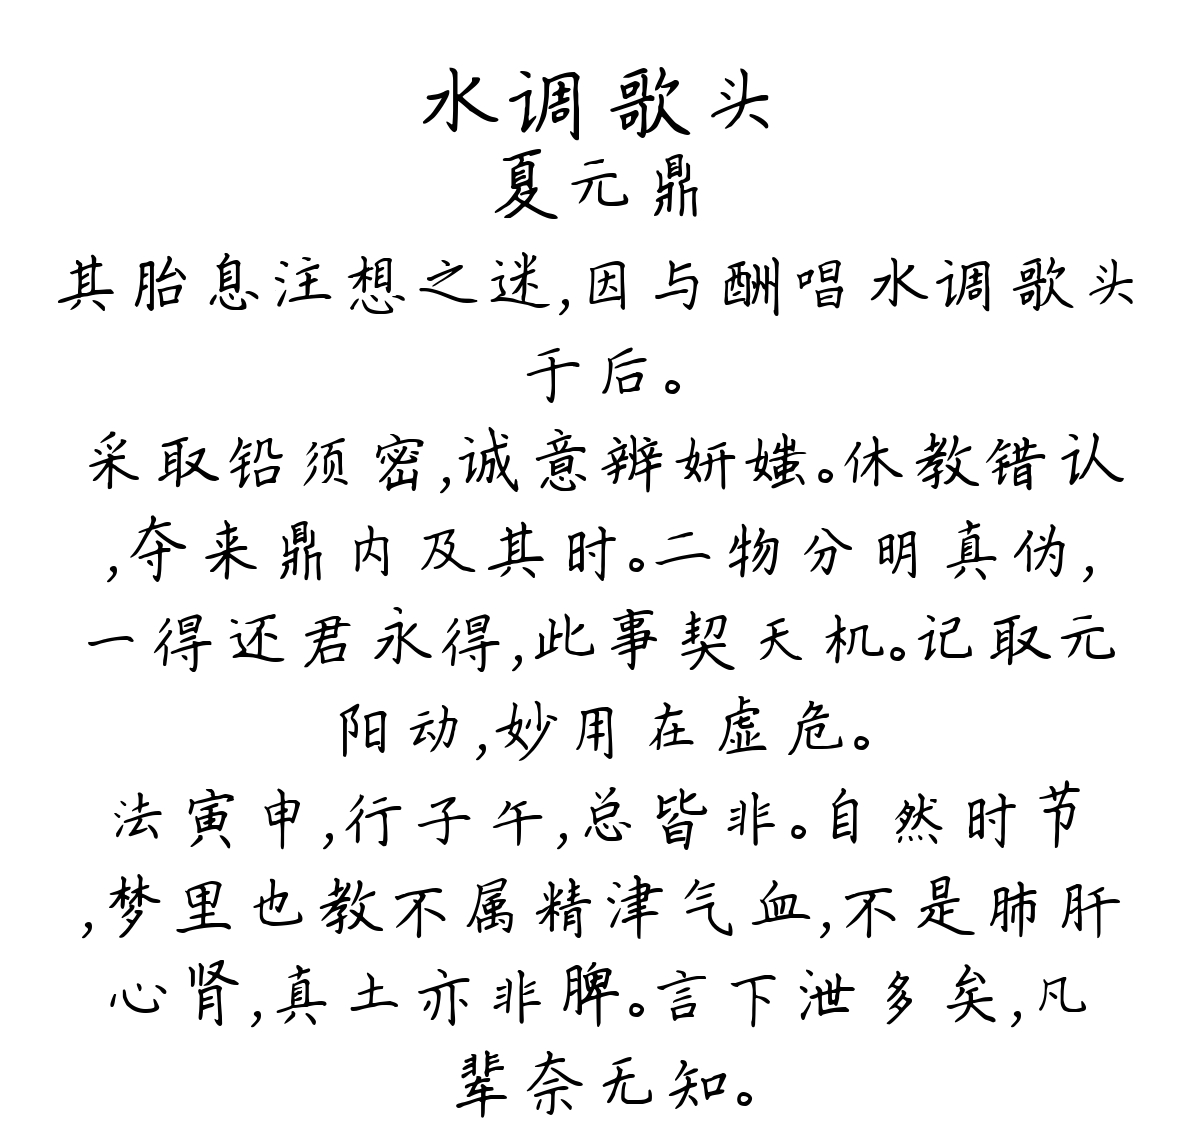 水调歌头
夏元鼎
其胎息注想之迷,因与酬唱水调歌头
于后。
采取铅须密,诚意辨妍媸。休教错认
,夺来鼎内及其时。二物分明真伪,
一得还君永得,此事契天机。记取元
阳动,妙用在虚危。
法寅申,行子午,总皆非。自然时节
,梦里也教不属精津气血,不是肺肝
心肾,真土亦非脾。言下泄多矣,凡
辈奈无知。